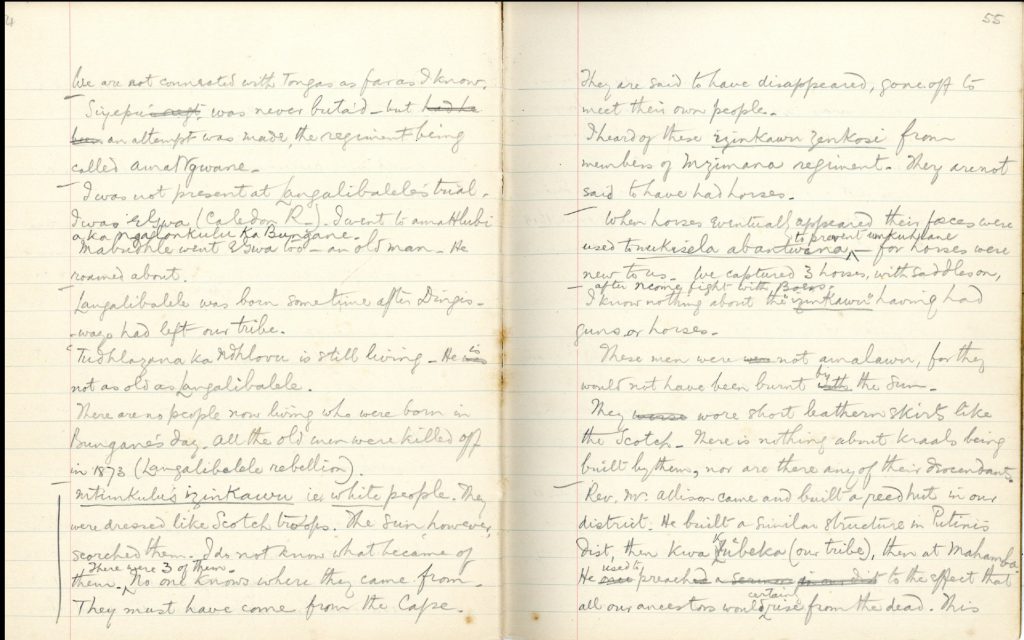 We are not connected with Tongas as far as I know.
Siyepu's was never buta'd - but had he
been an attempt was made, the regiment being
called amaNgwane.
I was not present at Langalibalele's trial.
I was eGwa (Caledon R.). I went to amaHlubi
aka Ngalonkulu ka Bungane.
Mabudhle went eGwa too - an old man. He
roamed about.
Langalibalele was born some time after Dingis-
-wayo had left our tribe.
Tudhlazana ka Ndhlovu is still living - He is
not as old as Langalibalele.
There are no people now living who were born in
Bungane's day. All the old men were killed off
in 1873 (Langalibalele rebellion).
Mtimkulu's izinkawu i.e. white people. They
were dressed like Scotch troops. The sun, however,
scorched them. I do not know what became of
There were 3 of them.
them. No one knows where they came from.
They must have come from the Cape.
55
They are said to have disappeared, gone off to
meet their own people.
I heard of these izinkawu zenkosi from
members of Mzimana regiment. They are not
said to have had horses.
When horses eventually appeared their faeces were
to prevent umkuhlane
used to nukisela abantwana - for horses were
new to us. We captured 3 horses, with saddles on,
after Ncome fight with Boers.
I know nothing about the "zinkawu" having had
guns or horses.
These men were not amalawu, for they
would not have been burnt by the sun.
They wore short leathern skirts like
the Scotch. There is nothing about kraals being
built by them, nor are there any of their descendants.
Rev. Mr. Allison came and built a reed hut in our
district. He built a similar structure in Putini's
dist, then kwa Lubeka (our tribe), then at Mahamba.
used to
He preach a sermon in our dist to the effect that
certainly
all our ancestors would rise from the dead. This